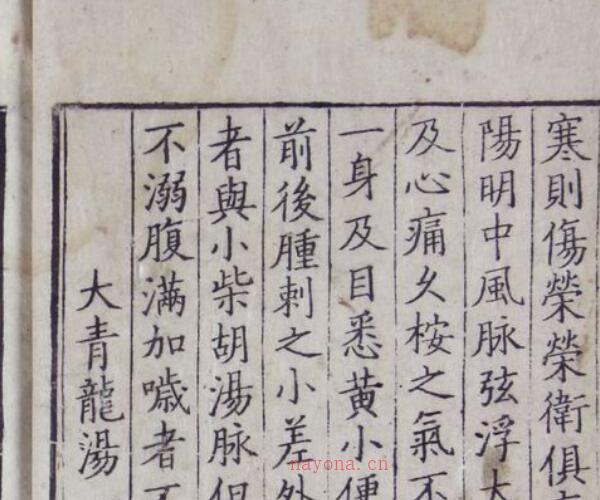 寒則傷榮榮衛俱
陽明中風脉弦浮大
及心痛久桉之氣不
一身及目悉黄小便
前後腫刺之小差外
者與小柴胡湯脉但
不溺腹滿加噦者不
大青龍湯
nayona.cn